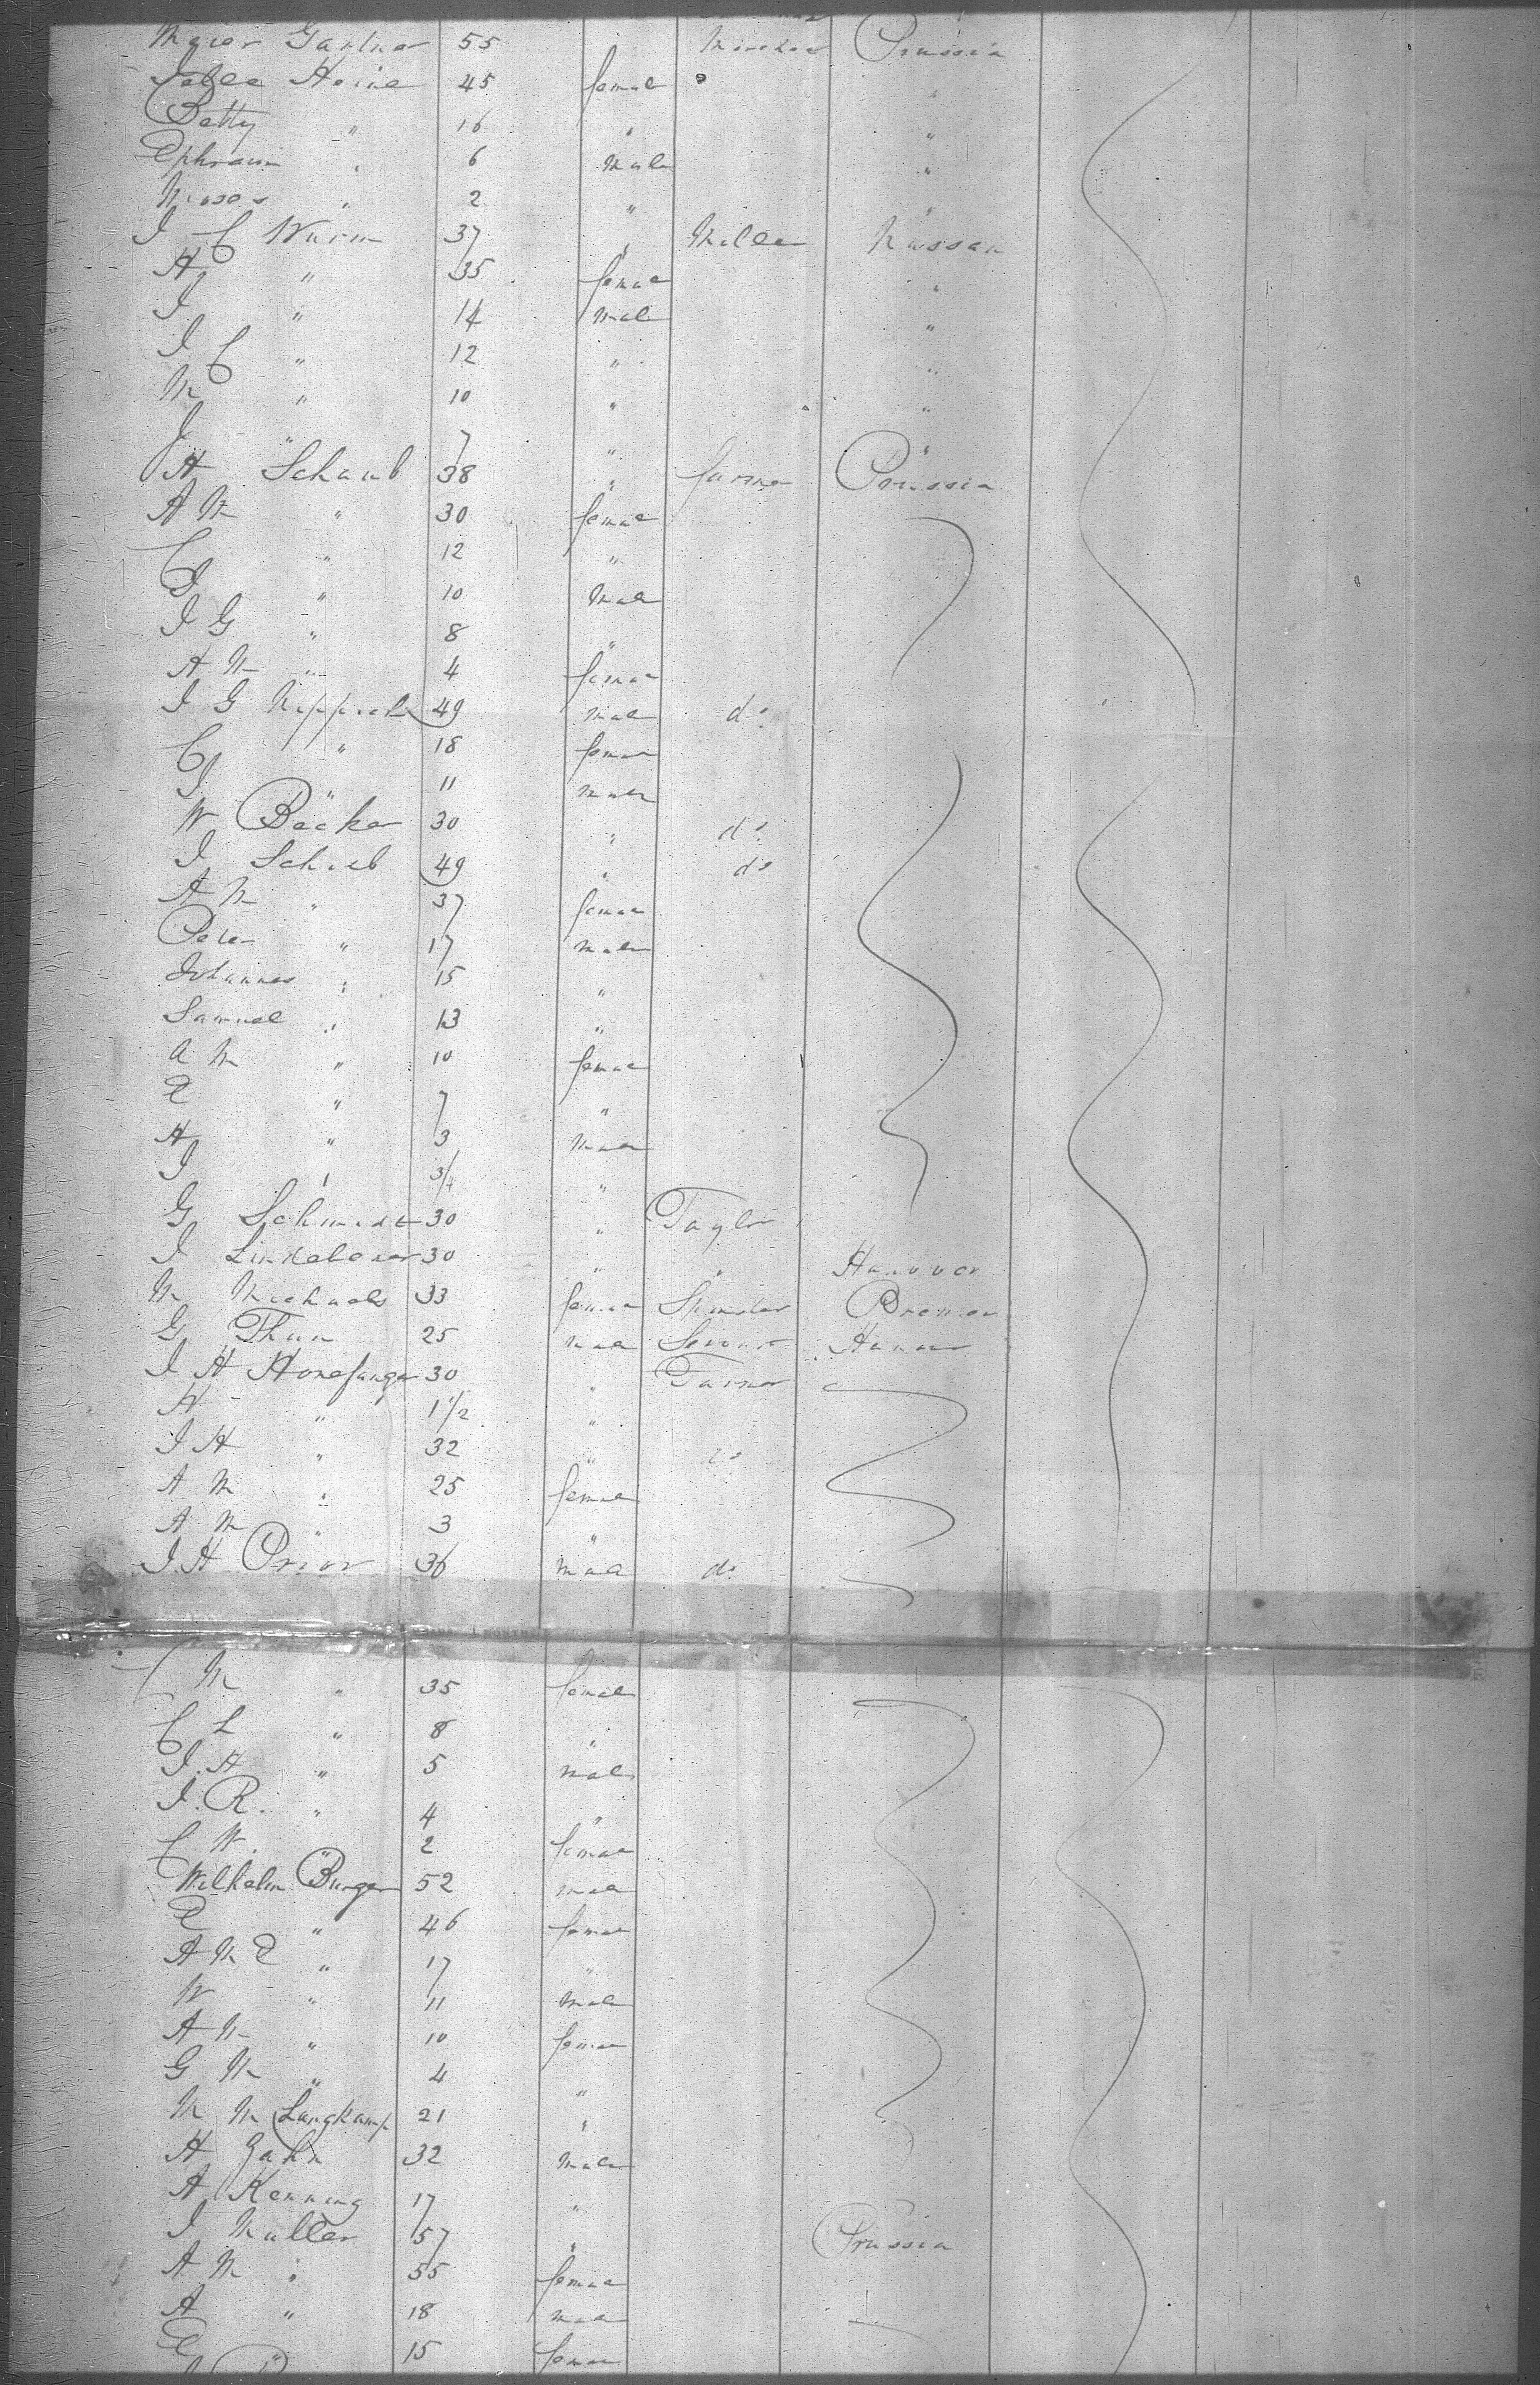 Meier Gartner 55 Merchan Prussia
Heine 45 female
Betty " 16 "
Ephraim " 6 Male "
Moses " 2 " "
I C Wurm 37 " Miller Nassau
A " 35 female "
I " 14 male "
I C " 12 " "
M " 10 " "
J " 7 " "
H Schaub 38 " farmer Prussia
A M " 30 female
C " 12 "
I " 10 Male
I G " 8 "
A M " 4 female
I G 49 male do
C " 18 female
I " 11 male
W Becker 30 " do
I Schieb 49 " do
A M " 37 female
Peter " 17 male
Johannes " 15 "
Samuel " 13 "
A M " 10 female
E " 7 "
H " 3 male
I " 3/4 "
G Schmidt 30 " Taylor
I 30 " " Hanover
M Michaels 33 female Spinster Bremen
G Thun 25 male Servant Hanover
I H 30 " Farmer
H " 1 1/2 "
I H " 32 " do
A M " 25 female
A M " 3 "
I. H Prior 36 male do
C M " 35 female
C L " 8 "
I. H " 5 male
I. R. " 4 "
C W. " 2 female
Wilhelm Burger 52 male
E " 46 female
A M E " 17 "
W " 11 male
A M " 10 female
G M " 4 "
M M Langkamp 21 "
H Jahn 32 male
A Kenning 17 "
I Muller 57 " Prussia
A M " 55 female
A " 18 male
E " 15 female